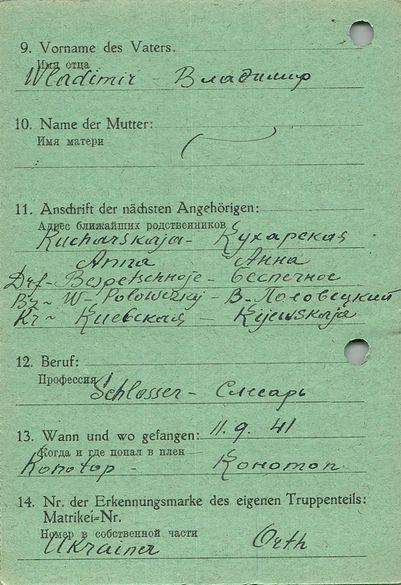 9. Vorname des Vaters.
Имя отца
Wladimir - Владимир
10. Name der Mutter:
Имя матери
11. Anschrift der nächsten Angehörigen:
Адрес ближайших родственников
Kucharskaja - Кухарская
Anna - Анна
Drf - Bespetschnoje - Беспечное
Bz - W - Polowezkij - В - Половецкий
Kr - Киевская - Kijewskaja
12. Beruf:
Профессия
Schlosser - Слесарь
13. Wann und wo gefangen: 11.9.41
Когда и где попал в плен
Konotop - Конотоп
14. Nr. der Erkennungsmarke des eigenen Truppenteils:
Matrikel-Nr.
Номер в собственной части
Ukrainer Orth